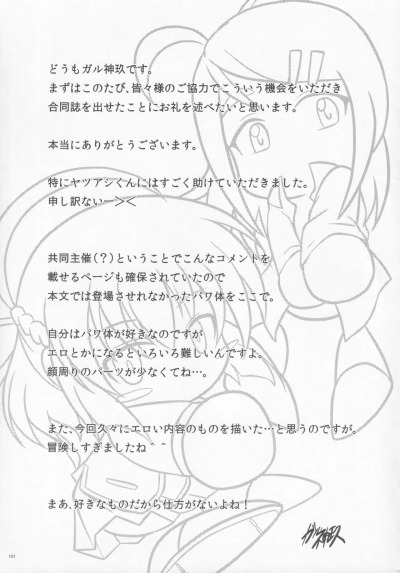 どうもガル神玖です。
まずはこのたび、皆々様のご協力でこういう機会をいただき
合同誌を出せたことにお礼を述べたいと思います。
本当にありがとうございます。
特にヤツアシくんにはすごく助けていただきました。
申し訳ないー><
共同主催(?)ということでこんなコメントを
載せるページも確保されていたので
本文では登場させれなかったパワ体をここで。
自分はパワ体が好きなのですが
エロとかになるといろいろ難しいんですよ。
顔周りのパーツが少なくてね…。
また、今回久々にエロい内容のものを描いた…と思うのですが。
冒険しすぎましたね^^
まあ、好きなものだから仕方がないよね！
ガル神玖
101